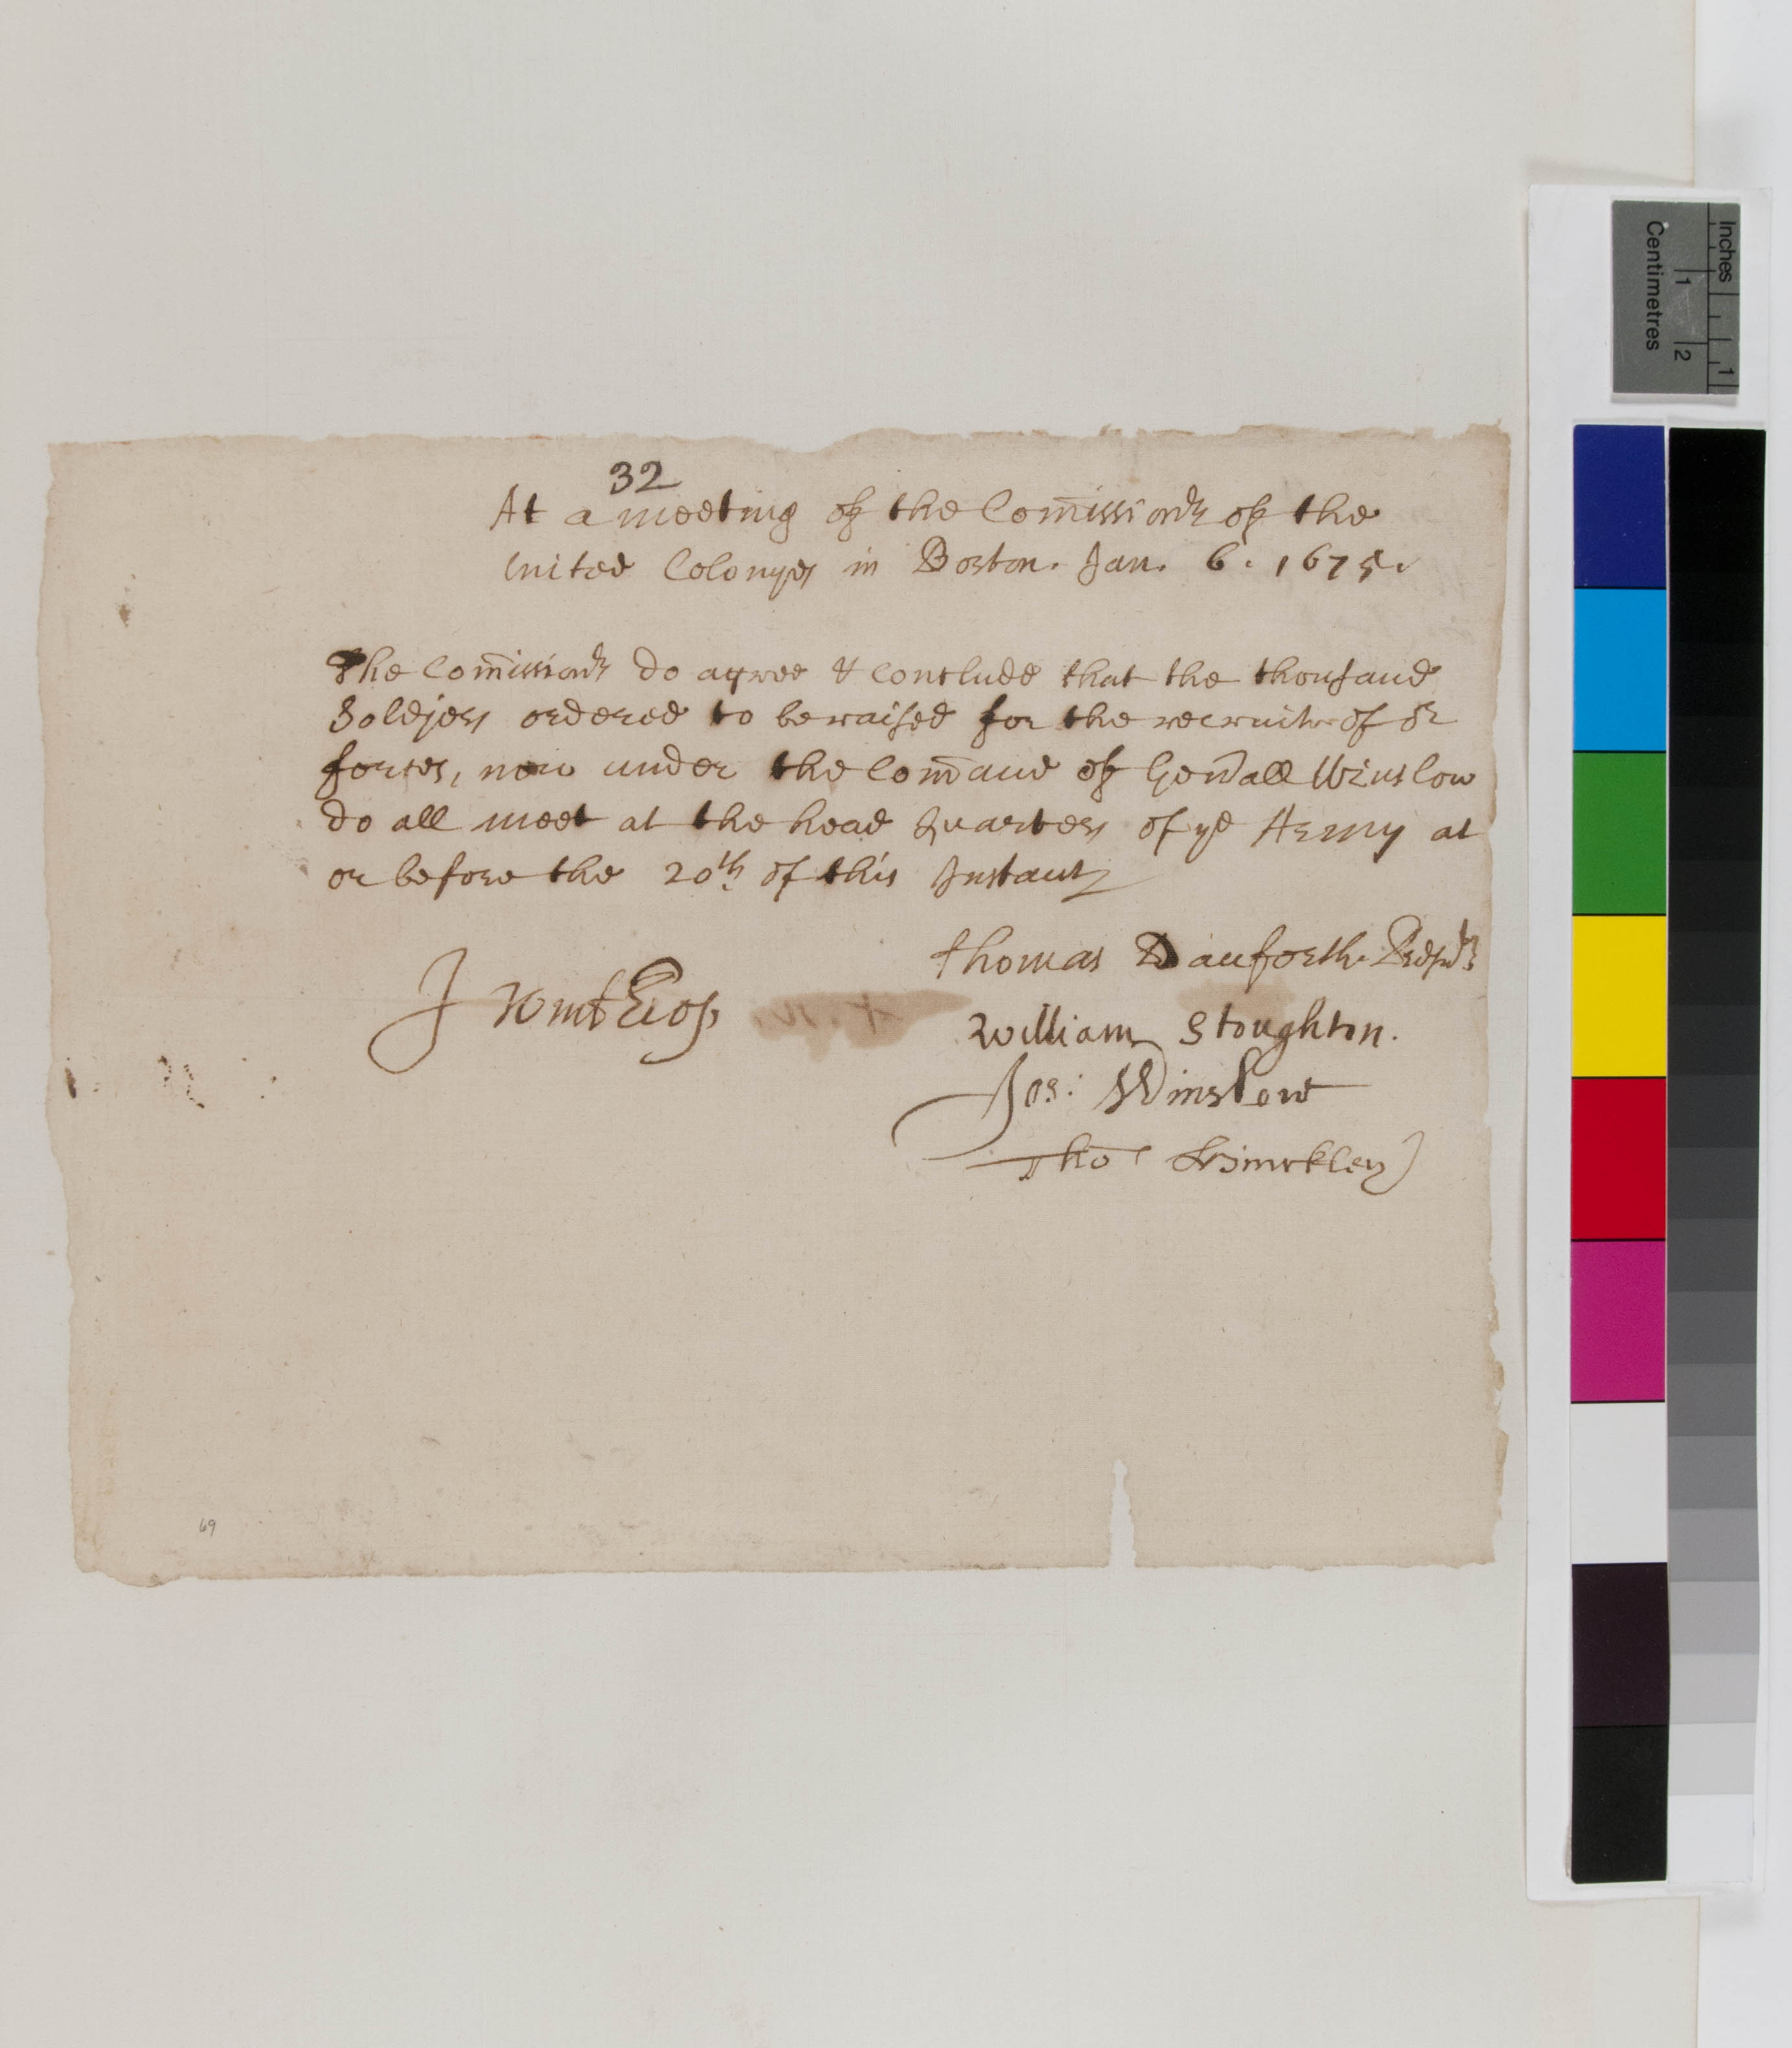 32
At a meeting of the Com̄ission.rs of the
United Colonyes in Boston. Jan. 6. 1675.
The Com̄ission.rs do agree & conclude that the thousand
Soldjers ordered to be raised for the recruite of o.r
forces, now under the Com̄and of Gen̄all Winslow
do all meet at the head Quarters of y.e Army at
or before the 20.th of this Instant
Thomas Danforth. Presid.t
J Winthrop
William Stoughton.
Jos: Winslow
Tho: Hinckley
69
Inches
1
Centimetres
1
2